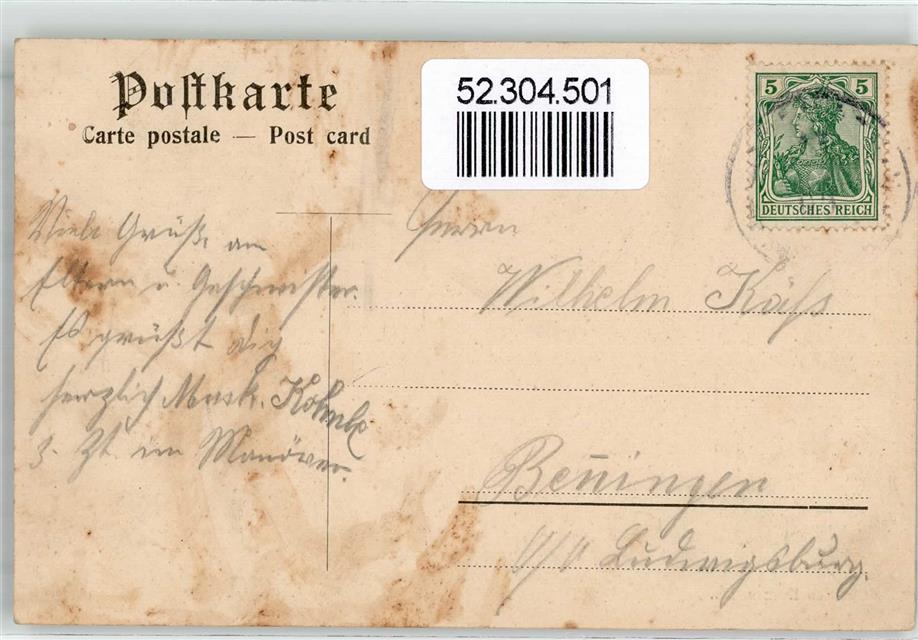 Postkarte
Carte postale — Post card
52.304.501
5 5
DEUTSCHES REICH
Viele Grüße an
Eltern u. Geschwister.
Es grüßt dich
herzlich Musk.
z. Zt. im Manöver.
Herrn
Wilhelm Käß
Beñingen
Ludwigsburg.